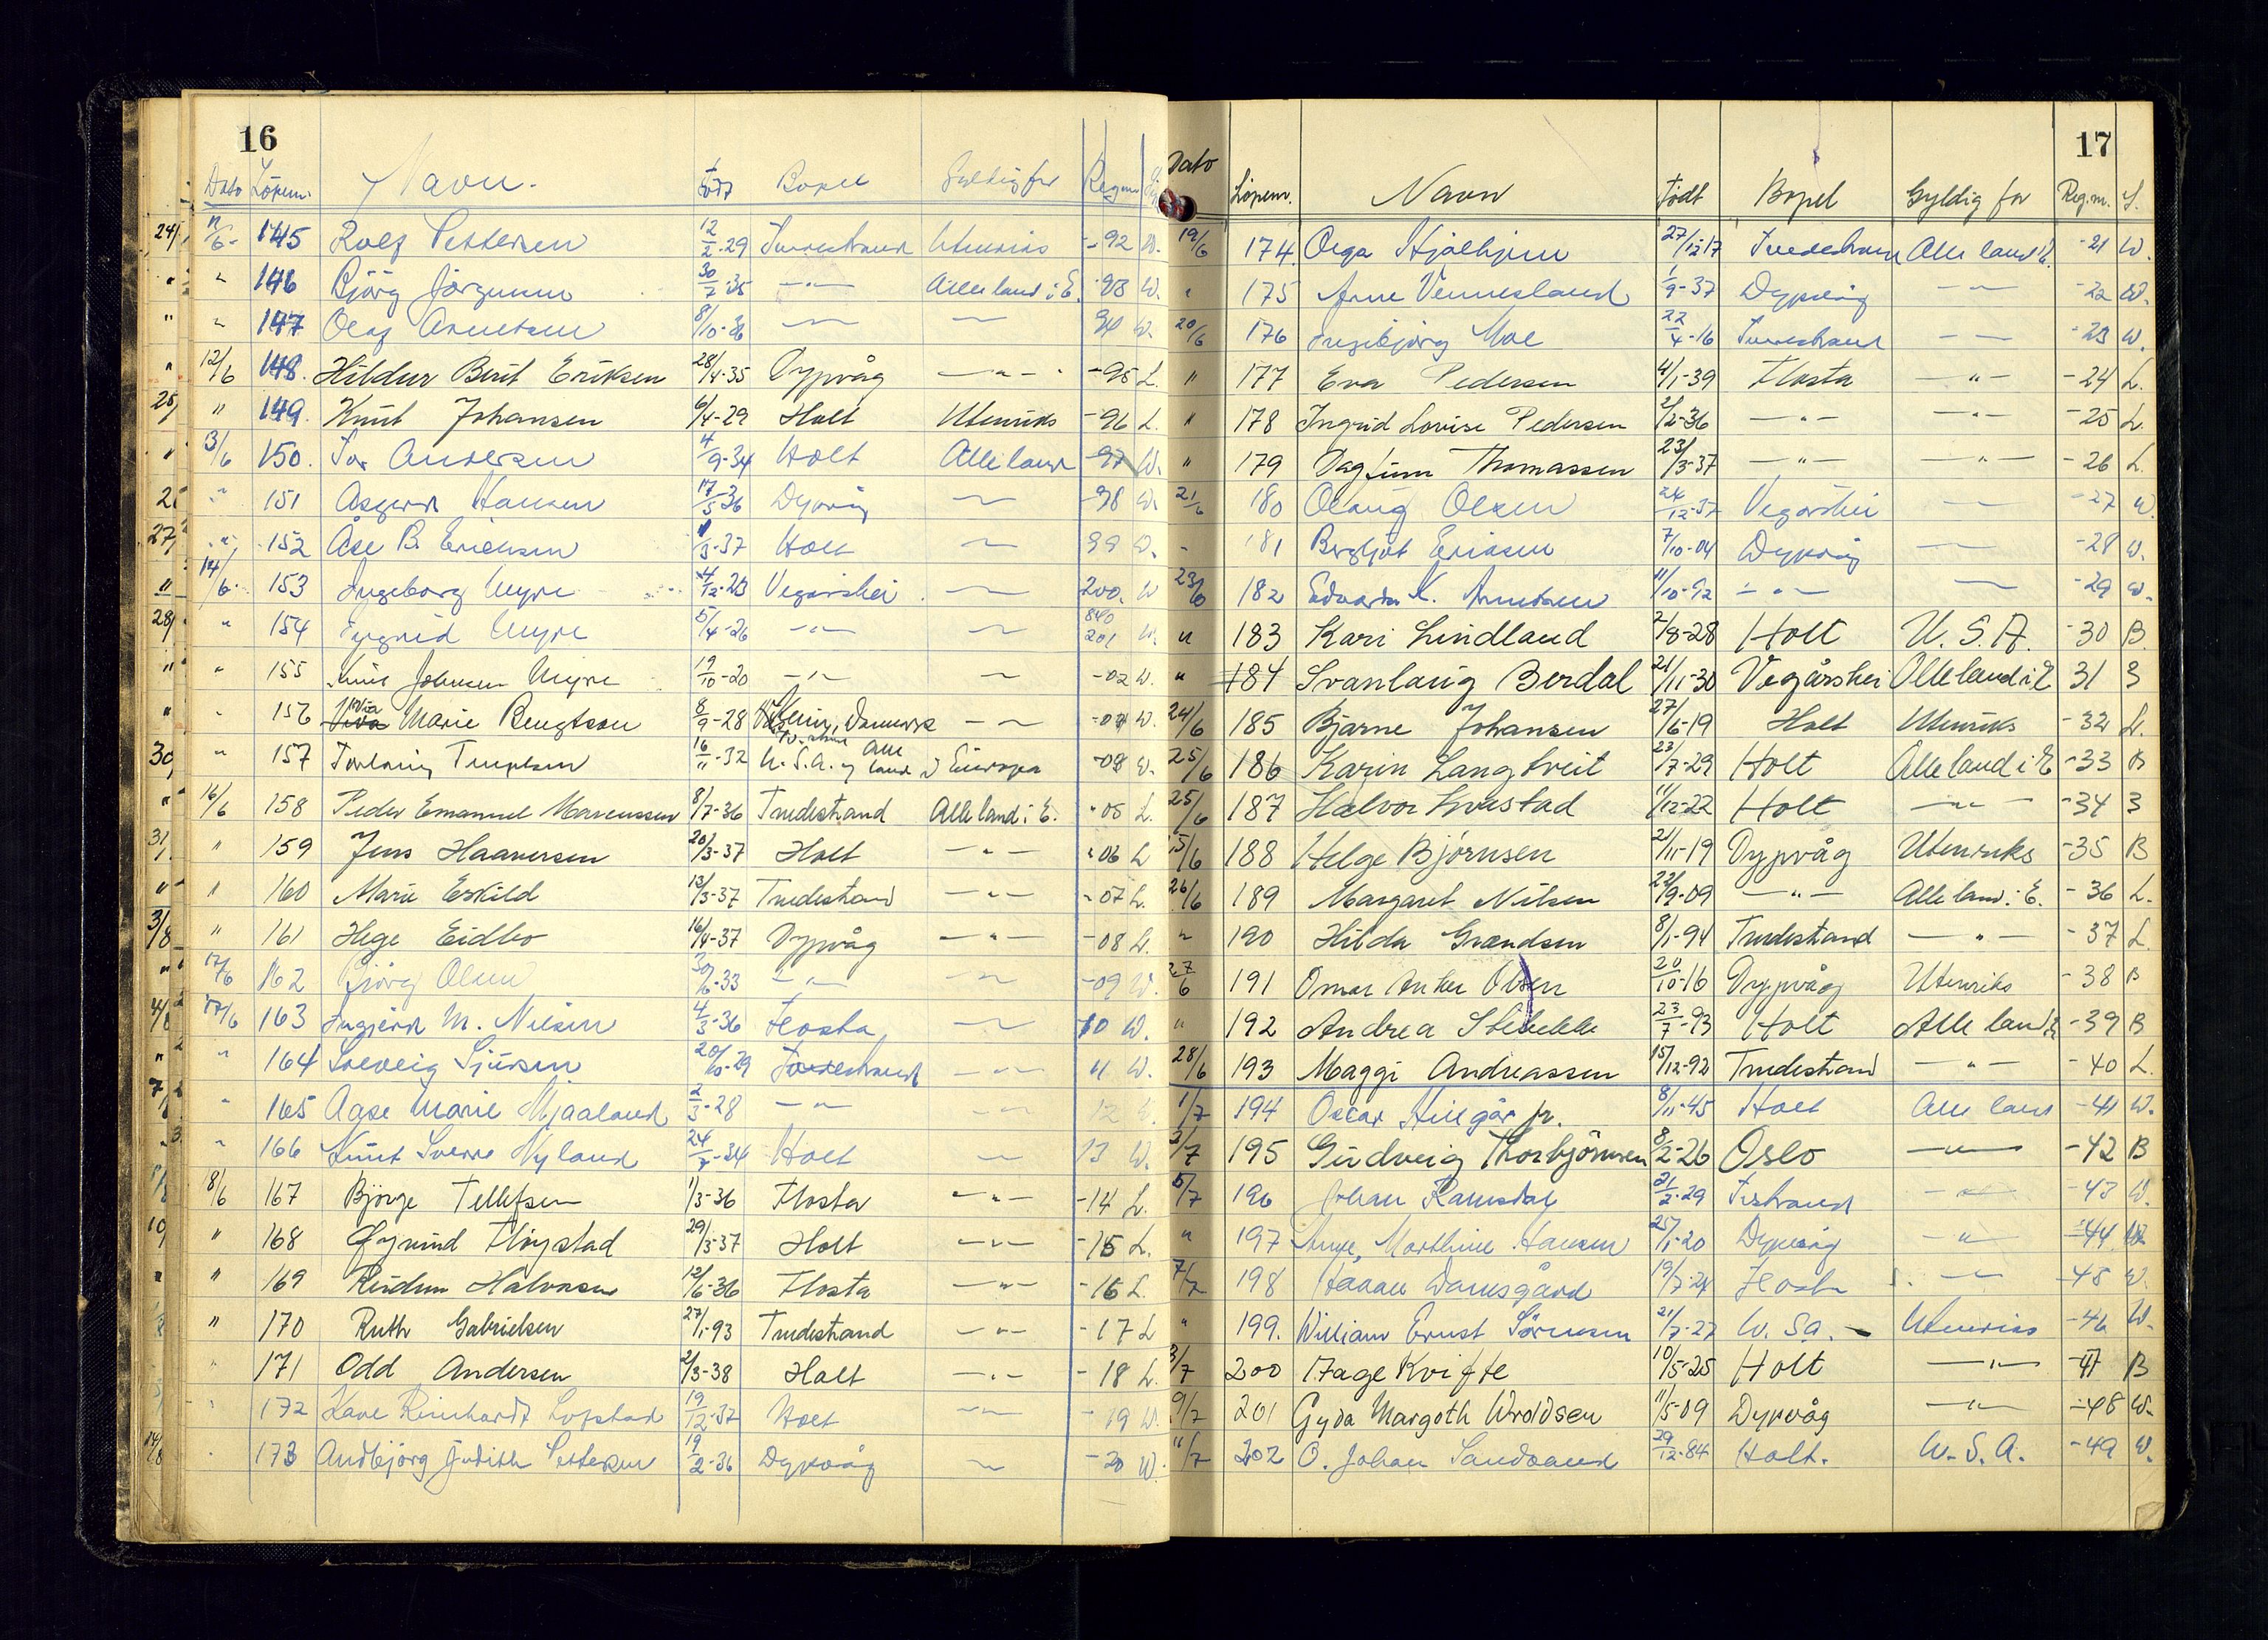 16
Dato Löpenr. Navn. Født Bopel Gyldig for Regnr.
12/6 145 Rolf Pettersen 12/2-29 Tvedestrand Utenriks -92 W.
" 146 Björg Jörgensen 30/7-35 —"— Alle land i E. -93 W.
" 147 Olaf Arnetsen 8/10-36 —"— —"— 94 W.
12/6 148. Hildur Berit Eriksen 28/4-35 Dypvåg —"— -95 L.
" 149. Knut Johansen 6/4-29 Holt Utenriks -96 L.
13/6 150. Tor Andersen 4/9-34 Holt Alle land -97 W.
" 151 Asgerd Hansen 17/5-36 Dypvåg —"— -98 W.
" 152 Åse B. Eriksen 1/3-37 Holt —"— 99 W.
14/6 153 Ingeborg Myre 4/12-23 Vegårshei —"— 200. W
" 154 Sygnid Myre 5/4-26 —"— —"— 840 201 W.
" 155 Knut Johnsen Myre 19/10-20 —"— —"— -02 W.
" 156 Marie Bengtson 8/9-28 Danmark —"— W.
" 157 Torlaug Tenelsen 16/11-32 U.S.A. og alle land i Europa W.
16/6 158 Peder Emanuel Marcussen 8/7-36 Tvedestrand Alle land i E. -05 L.
" 159 Jens Haaversen 20/3-37 Holt —"— -06 L
" 160 Marie Eskild 13/3-37 Tvedestrand —"— -07 L.
" 161 Hege Eidbo 16/4-37 Dypvåg —"— -08 L.
17/6 162 Björg Olsen 30/6-33 —"— —"— -09 W.
17/6 163 Ingjerd M. Nilsen 4/3-36 Flosta —"— 10 W.
" 164 Solveig Sjursen 20/10-29 Tvedestrand —"— 11 W.
" 165 Aase Marie Mjaaland 2/3-28 —"— —"— 12 W.
" 166 Knut Sverre Nyland 24/7-34 Holt —"— 13 W.
18/6 167 Björge Tellefsen 1/3-36 Flosta —"— -14 L.
" 168 Øyvind Fløystad 29/3-37 Holt —"— -15 L.
" 169 Reidun Halvorsen 12/6-36 Flosta —"— -16 L.
" 170 Ruth Gabrielsen 27/1-93 Tvedestrand —"— -17 L
" 171 Odd Andersen 2/3-38 Holt —"— -18 L.
" 172 Kåre Reinhardt Lofstad 19/12-37 Holt —"— -19 W.
" 173 Andbjörg Judith Pettersen 19/2-36 Dypvåg —"— -20 W.
17
Dato Löpenr. Navn Født Bopel Gyldig for Reg.nr. S.
19/6 174. Olga Hjelhjem 27/12-17 Tvedestrand Alle land i E. -21 W.
" 175 Arne Vennesland 1/9-37 Dypvåg —"— -22 W.
20/6 176 Ingebjörg Moe 22/4-16 Tvedestrand —"— -23 W.
" 177 Eva Pedersen 4/1-39 Flosta —"— -24 L.
" 178 Ingrid Lovise Pedersen 2/12-36 —"— —"— -25 L.
" 179 Dagfinn Thomassen 23/3-37 —"— —"— -26 L.
21/6 180 Olaug Olsen 24/12-37 Vegårshei —"— -27 W.
" 181 Bergljot Eriksen 7/10-04 Dypvåg —"— -28 W.
23/6 182 Edvarda K. Arnetsen 11/10-92 —"— —"— -29 W.
" 183 Kari Lindland 2/8-28 Holt U.S.A. -30 B.
" 184 Svanlaug Berdal 21/11-30 Vegårshei Alle land i E 31 B
24/6 185 Bjarne Johansen 27/6-19 Holt Utenriks -32 L.
25/6 186 Karin Langtveit 23/7-29 Holt Alle land i E -33 B
25/6 187 Halvor Kvastad 11/12-22 Holt —"— -34 B
25/6 188 Helge Bjørnsen 21/11-19 Dypvåg Utenriks -35 B
26/6 189 Margaret Nilsen 22/9-09 —"— Alle land i E. -36 L.
" 190 Hilda Grændsen 8/1-94 Tvedestrand —"— -37 L
27/6 191 Omar Anker Olsen 20/10-16 Dypvåg Utenriks -38 B
" 192 Andrea Stebekk 23/7-93 Holt Alle land i E -39 B
28/6 193 Maggi Andreassen 15/12-92 Tvedestrand —"— -40 L.
1/7 194 Oscar Hillgår jr. 8/11-45 Holt Alle land -41 W.
3/7 195 Gudveig Thorbjörnsen 8/2-26 Oslo —"— -42 B
5/7 196 Johan Ramsdal 21/2-29 T.strand —"— -43 W.
" 197 Aage, Marthine Hansen 25/1-20 Dypvåg —"— -44 W
7/7 198 Håkon Damsgård 19/7-24 Flosta —"— -45 W.
" 199. William Ernst Sörensen 21/7-27 U.S.A. Utenriks -46 W.
3/7 200 Dage Kvifte 10/5-25 Holt —"— -47 B
9/7 201 Gyda Margoth Wroldsen 11/5-09 Dypvåg —"— -48 W.
11/7 202 O. Johan Sandsaand 29/12-84 Holt. U.S.A. -49 W.